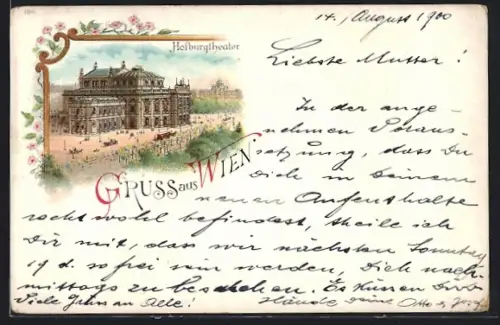 14., August 1900
Hofburgtheater
Liebste Mutter!
In der ange-
nehmen Voraus-
setzung, dass Du
Dich in Deinem
GRUSS aus WIEN
neuen Aufenthalte
recht wohl befindest, theile ich
Dir mit, dass wir nächsten Sonntag
19 d. so frei sein werden, Dich nach-
mittags zu besuchen. Es küssen Dir
Viele an Alle! Hände Deine Otto &